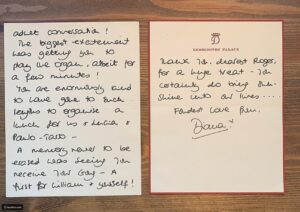 adult conversation!
The biggest excitement
was getting you to
play the organ, albeit for
a few minutes!
You are enormously kind
to have gone to such
lengths to organise a
lunch for us & Lucia &
Paulo-Tarso -
A memory never to be
erased was seeing you
receive your Gay - A
first for William & myself!
KENSINGTON PALACE
Thank you, dearest Roger,
for a huge treat - You
certainly do bring Sun-
shine into our lives....
Fondest love from,
Diana x